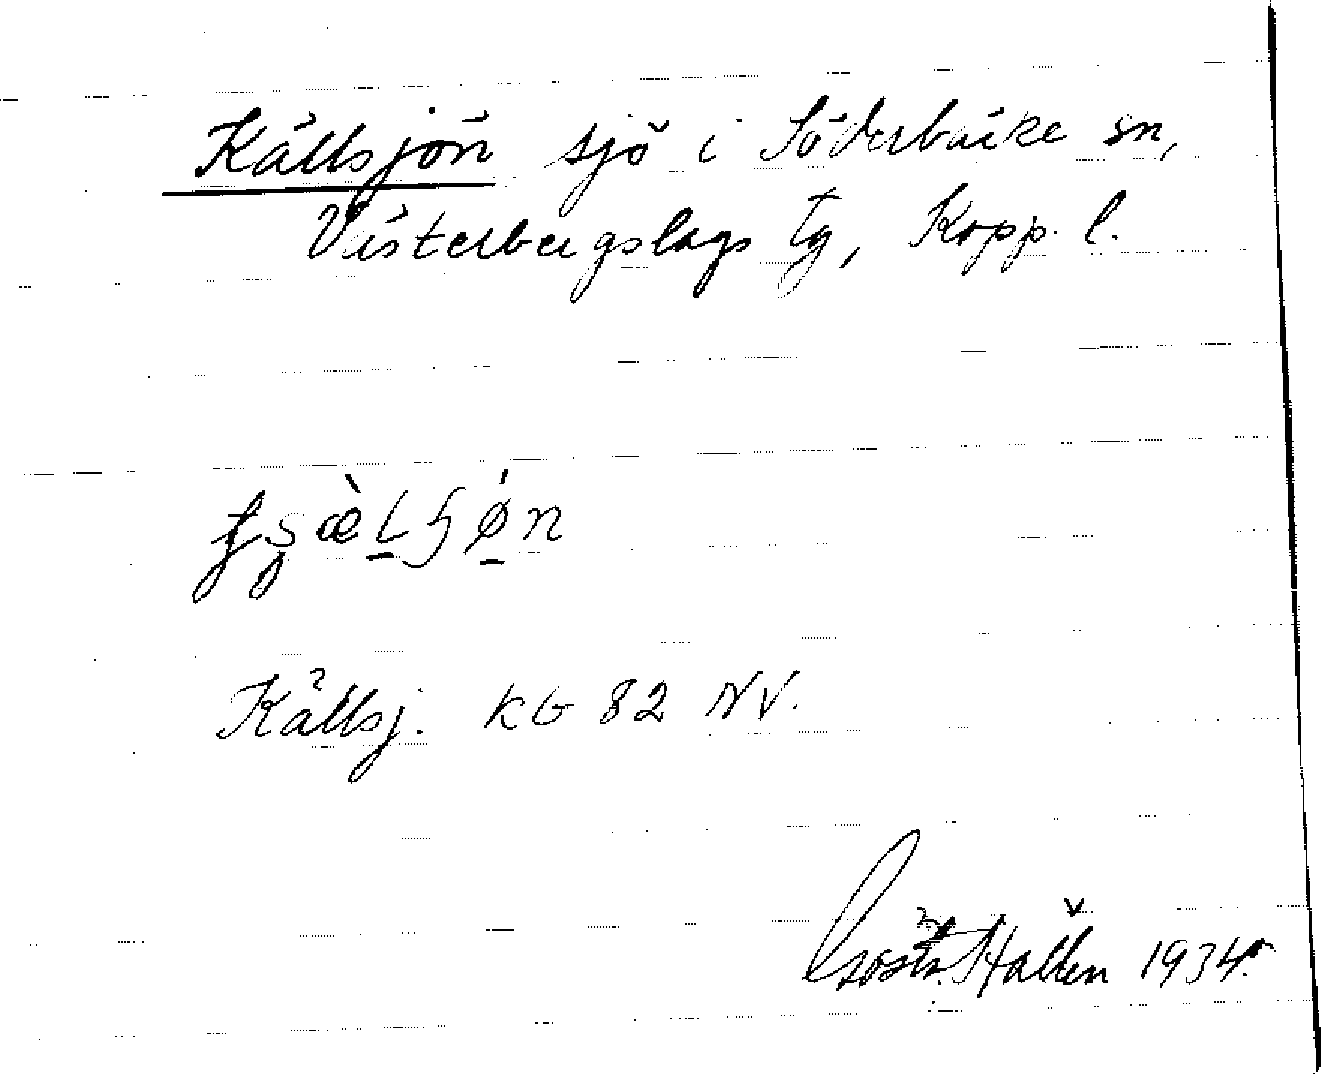 Källsjön sjö i Söderbärke sn,
Västerbergslags tg, Kopp. l.
Källsj. KG 82 NV.
Gösta Hallén 1934.